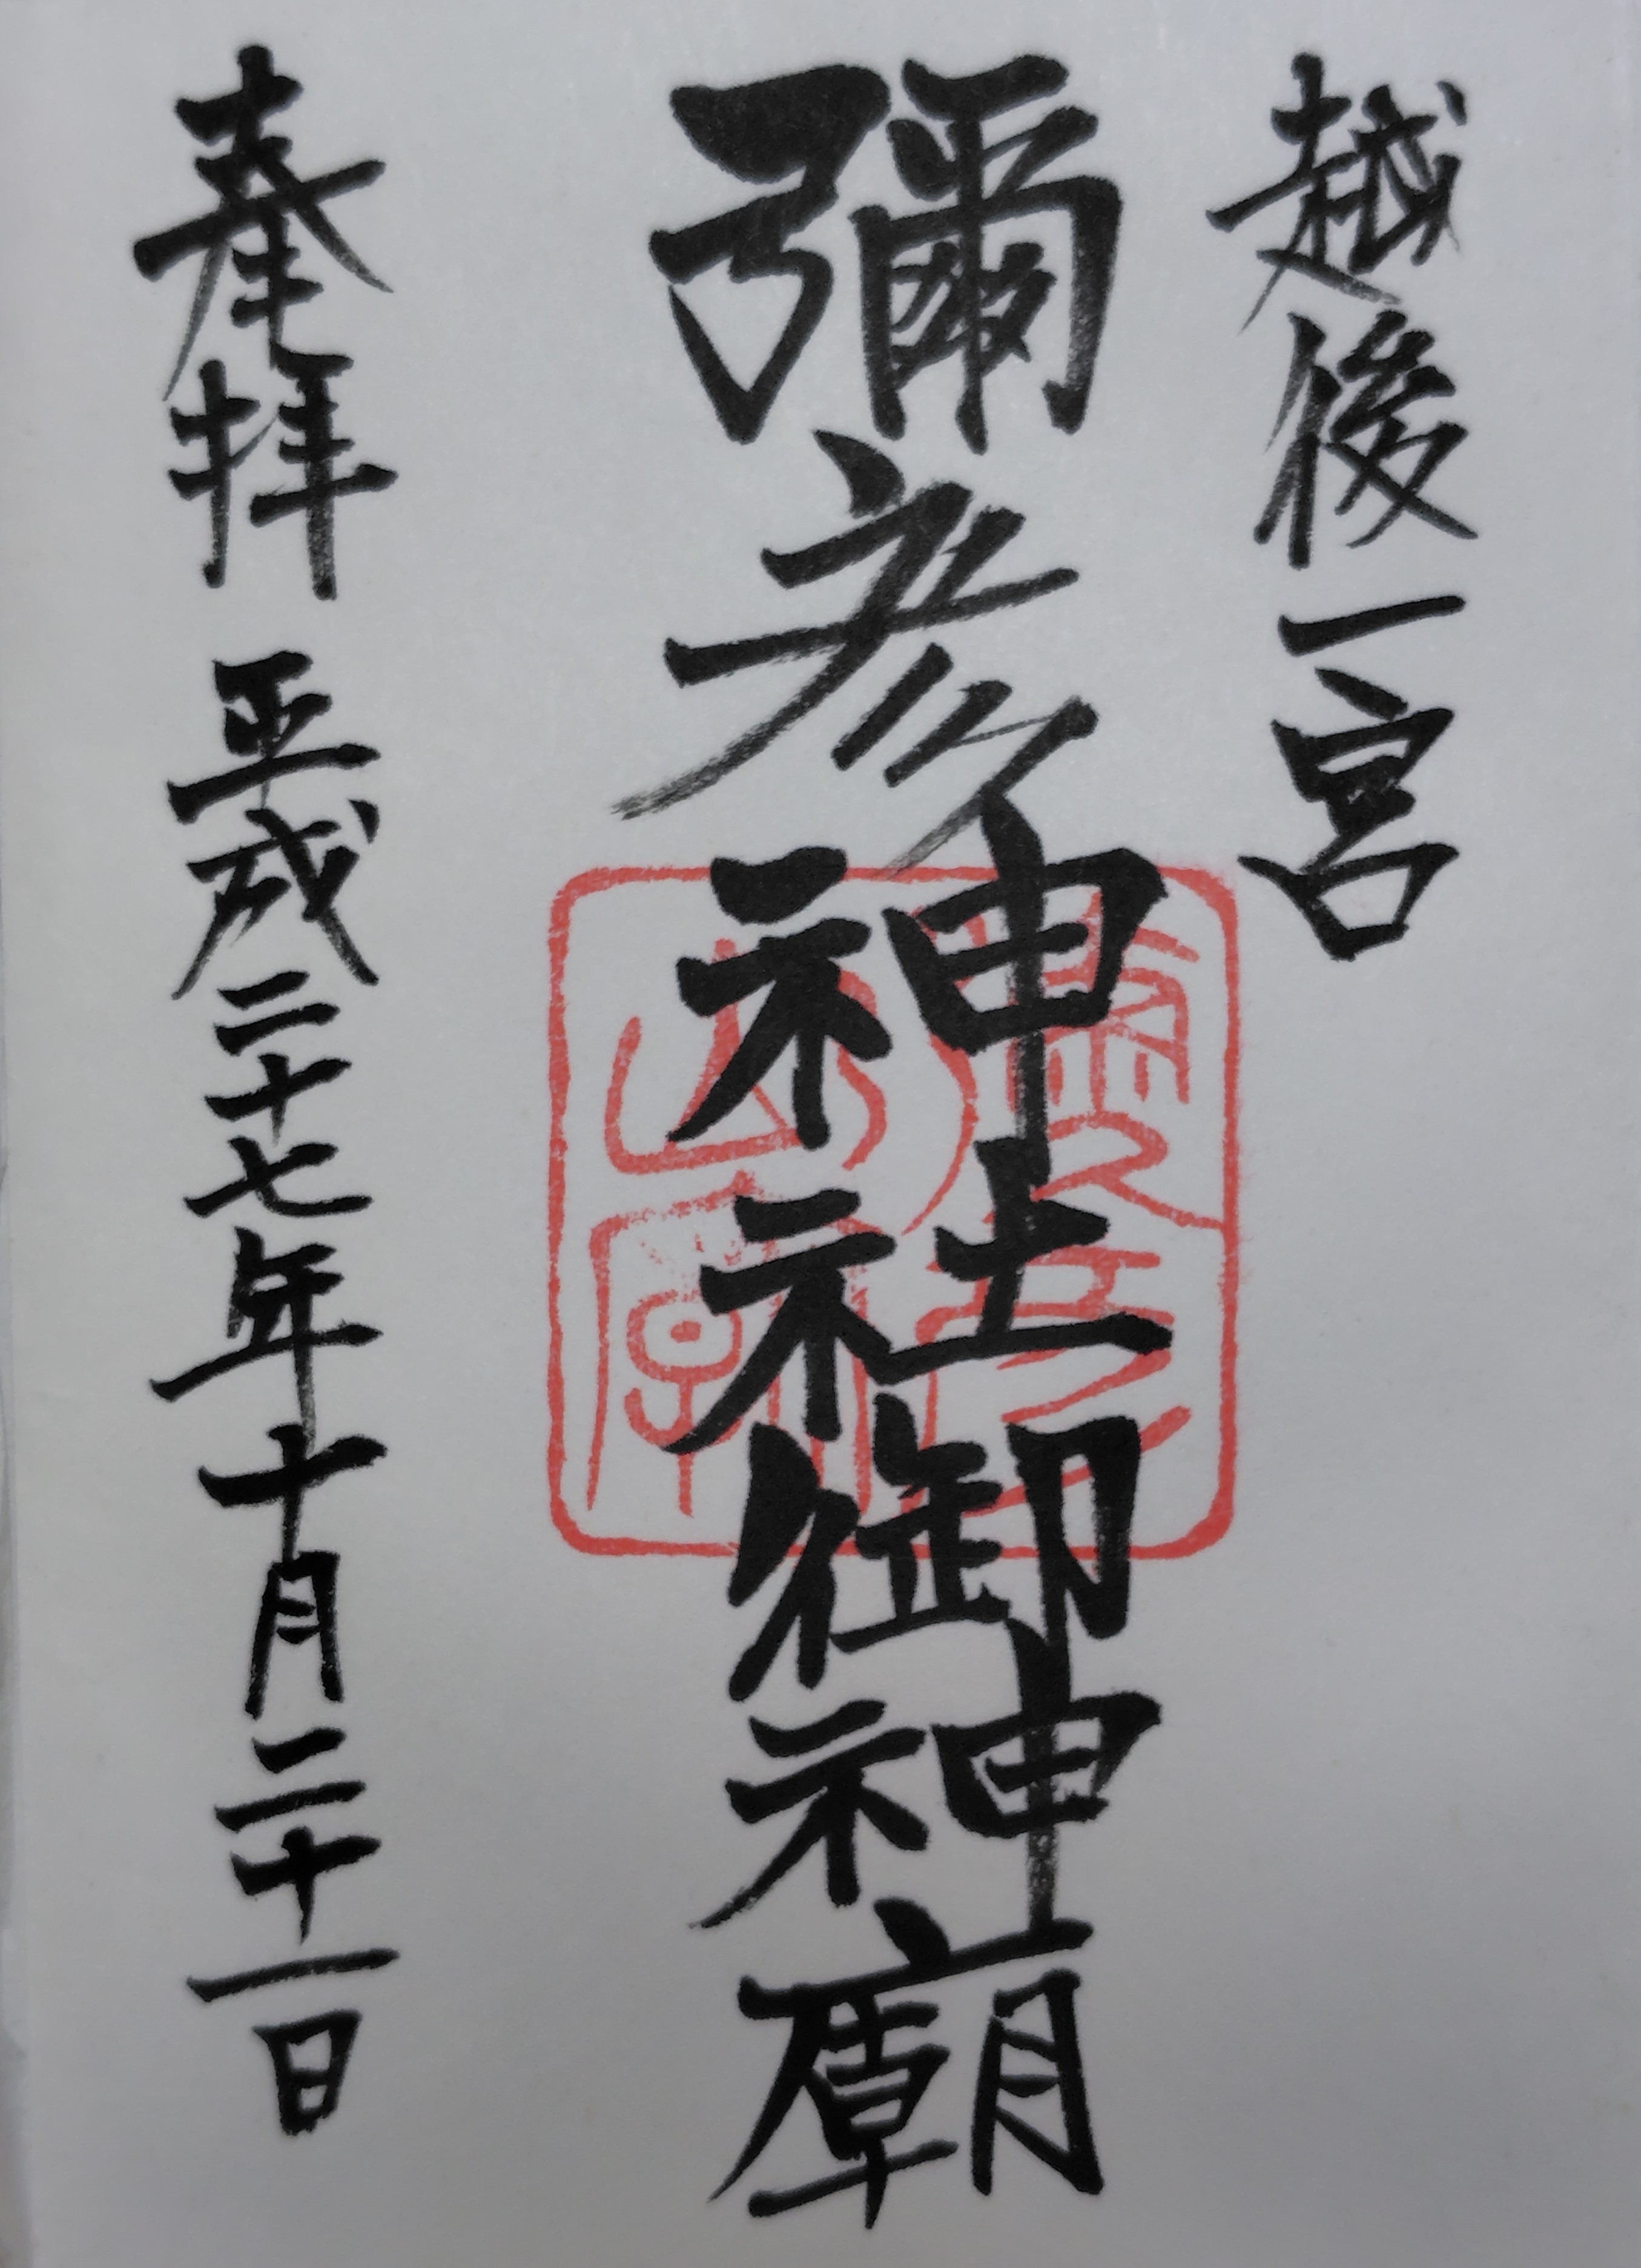 越後一宮
彌彦神社御神廟
奉拝 平成二十七年十月二十一日